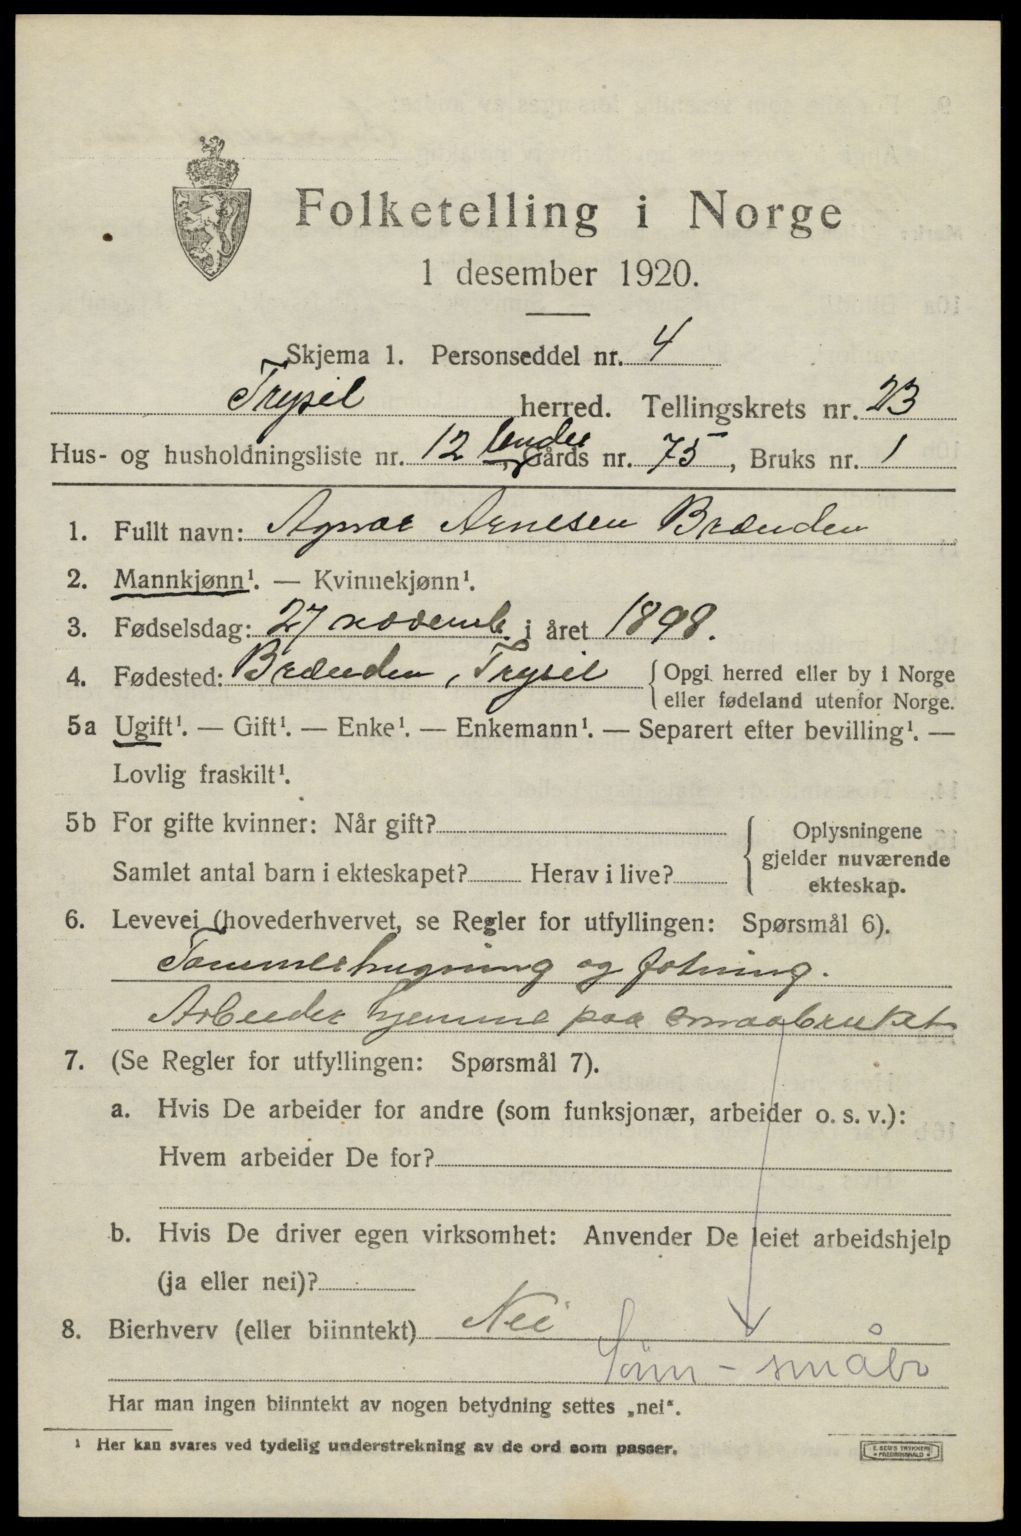 Folketelling i Norge
1 desember 1920.
Skjema 1. Personseddel nr. 4
Trysil herred. Tellingskrets nr. 23
Hus- og husholdningsliste nr. 12 søndre, Gårds nr. 75, Bruks nr. 1
1. Fullt navn: Agnar Arnesen Brænden
2. Mannkjønn¹. — Kvinnekjønn¹.
3. Fødselsdag: 27 novemb. i året 1898.
4. Fødested: Brænden, Trysil { Opgi herred eller by i Norge
eller fødeland utenfor Norge.
5a Ugift¹. — Gift¹. — Enke¹. — Enkemann¹. — Separert efter bevilling¹. —
Lovlig fraskilt¹.
5b For gifte kvinner: Når gift?
Samlet antal barn i ekteskapet? Herav i live?
Oplysningene
gjelder nuværende
ekteskap.
6. Levevei (hovederhvervet, se Regler for utfyllingen: Spørsmål 6).
Tømmerhugning og fløtning.
Arbeider hjemme paa smaabruket
7. (Se Regler for utfyllingen: Spørsmål 7).
a. Hvis De arbeider for andre (som funksjonær, arbeider o. s. v.):
Hvem arbeider De for?
b. Hvis De driver egen virksomhet: Anvender De leiet arbeidshjelp
(ja eller nei)?
8. Bierhverv (eller biinntekt) Nei
Søm - småbr
Har man ingen biinntekt av nogen betydning settes „nei“.
¹ Her kan svares ved tydelig understrekning av de ord som passer.